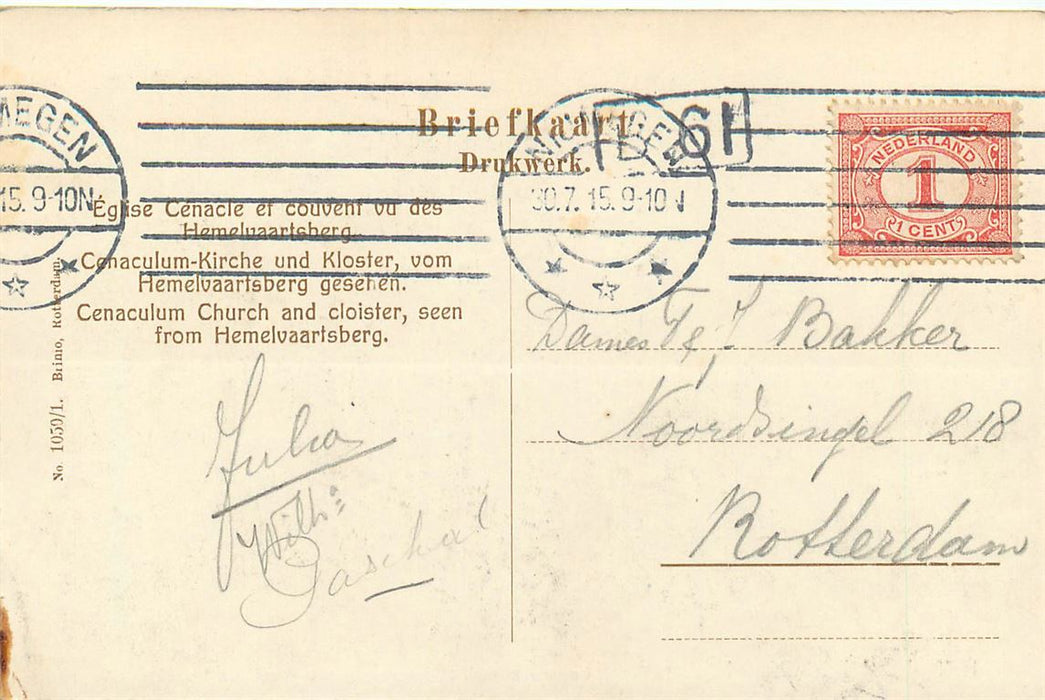 Briefkaart
Drukwerk.
NIJMEGEN
30.7.15.9-10N
MEGEN
15.9-10N
NEDERLAND
1
1 CENT
Église Cénacle et couvent vu dès
Hemelvaartsberg.
Cenaculum-Kirche und Kloster, vom
Hemelvaartsberg gesehen.
Cenaculum Church and cloister, seen
from Hemelvaartsberg.
No. 1050/1. Brinio, Rotterdam.
Julia
Wilh:
Paschal
Dames F & J Bakker
Noordsingel 218
Rotterdam